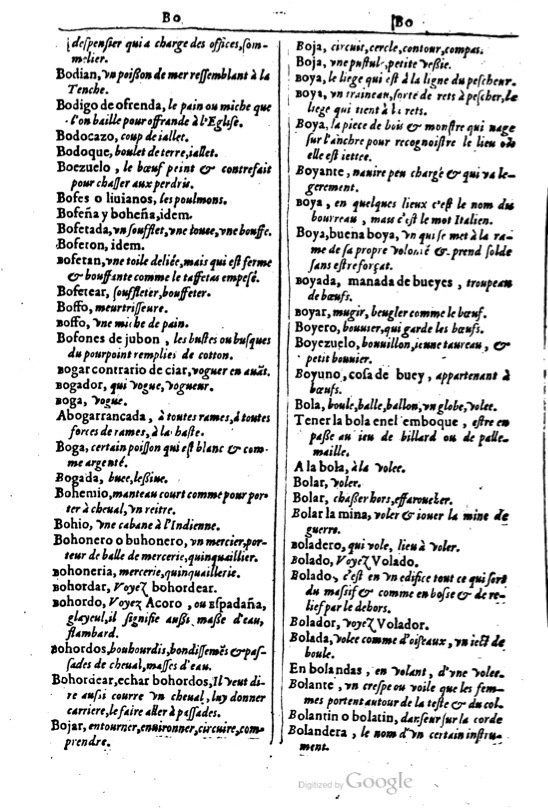 Bo
despensier qui a charge des offices, som-
melier.
Bodian, vn poißon de mer ressemblant à la
Tenche.
Bodigo de ofrenda, le pain ou miche que
l'on baille pour offrande à l'Eglise.
Bodocazo, coup de iallet.
Bodoque, boulet de terre, iallet.
Boezuelo, le bœuf peint & contrefait
pour chasser aux perdris.
Bofes o liuianos, les poulmons.
Bofeña y boheña, idem.
Bofetada, vn soufflet, vne touue, vne bouffe.
Boferon, idem.
Bofetan, vne toile deliée, mais qui est ferme
& bouffante comme le taffetas empesé.
Bofetear, souffleter, bouffeter.
Boffo, meurtrisseure.
Boffo, vne miche de pain.
Bofones de jubon, les bustes ou busques
du pourpoint remplies de cotton.
Bogar contrario de ciar, voguer en auãt.
Bogador, qui vogue, vogueur.
Boga, vogue.
Abogarrancada, à toutes rames, à toutes
forces de rames, à la haste.
Boga, certain poisson qui est blanc & com-
me argenté.
Bogada, buee, lessiue.
Bohemio, manteau court comme pour por-
ter à cheual, vn reitre.
Bohio, vne cabane à l'Indienne.
Bohonero o buhonero, vn mercier, por-
teur de balle de mercerie, quinquaillier.
Bohoneria, mercerie, quinquaillerie.
Bohordar, Voyez bohordear.
Bohordo, Voyez Acoro, ou Espadaña,
glayeul, il signifie außi maße d'eau,
flambard.
Bohordos, bouhourdis, bondissemẽs & pas-
sades de cheual, masses d'eau.
Bohordear, echar bohordos, Il veut di-
re außi courre vn cheual, luy donner
carriere, le faire aller à passades.
Bojar, entourner, enuironner, circuire, com-
prendre.
Bo
Boja, circuit, cercle, contour, compas.
Boja, vne pustul, petite veßie.
Boya, le liege qui est à la ligne du pescheur.
Boya, vn traineau, sorte de rets à pescher, le
liege qui tient à la rets.
Boya, la piece de bois & monstre qui nage
sur l'anchre pour recognoistre le lieu où
elle est iettee.
Boyante, nauire peu chargé & qui va le-
gerement.
Boya, en quelques lieux c'est le nom du
bourreau, mais c'est le mot Italien.
Boya, buena boya, vn qui se met à la ra-
me de sa propre volonté & prend solde
sans estre forçat.
Boyada, manada de bueyes, troupeau
de bœufs.
Boyar, mugir, beugler comme le bœuf.
Boyero, bouuier, qui garde les bœufs.
Boyezuelo, bouuillon, ieune taureau, &
petit bouuier.
Boyuno, cosa de buey, appartenant à
bœufs.
Bola, boule, balle, ballon, vn globe, volee.
Tener la bola en el emboque, estre en
passe au ieu de billard ou de palle-
maille.
A la bola, à la volee.
Bolar, voler.
Bolar, chasser hors, effaroucher.
Bolar la mina, voler & iouer la mine de
guerre.
Boladero, qui vole, lieu à voler.
Bolado, Voyez Volado.
Bolado, c'est en vn edifice tout ce qui sort
du massif & comme en bosse & de re-
lief par le dehors.
Bolador, voyez Volador.
Bolada, volee comme d'oiseaux, vn iect de
boule.
En bolandas, en volant, d'vne volee.
Bolante, vn crespe ou voile que les fem-
mes portent autour de la teste & du col.
Bolantin o bolatin, danseur sur la corde
Bolandera, le nom d'vn certain instru-
ment.
Digitized by Google